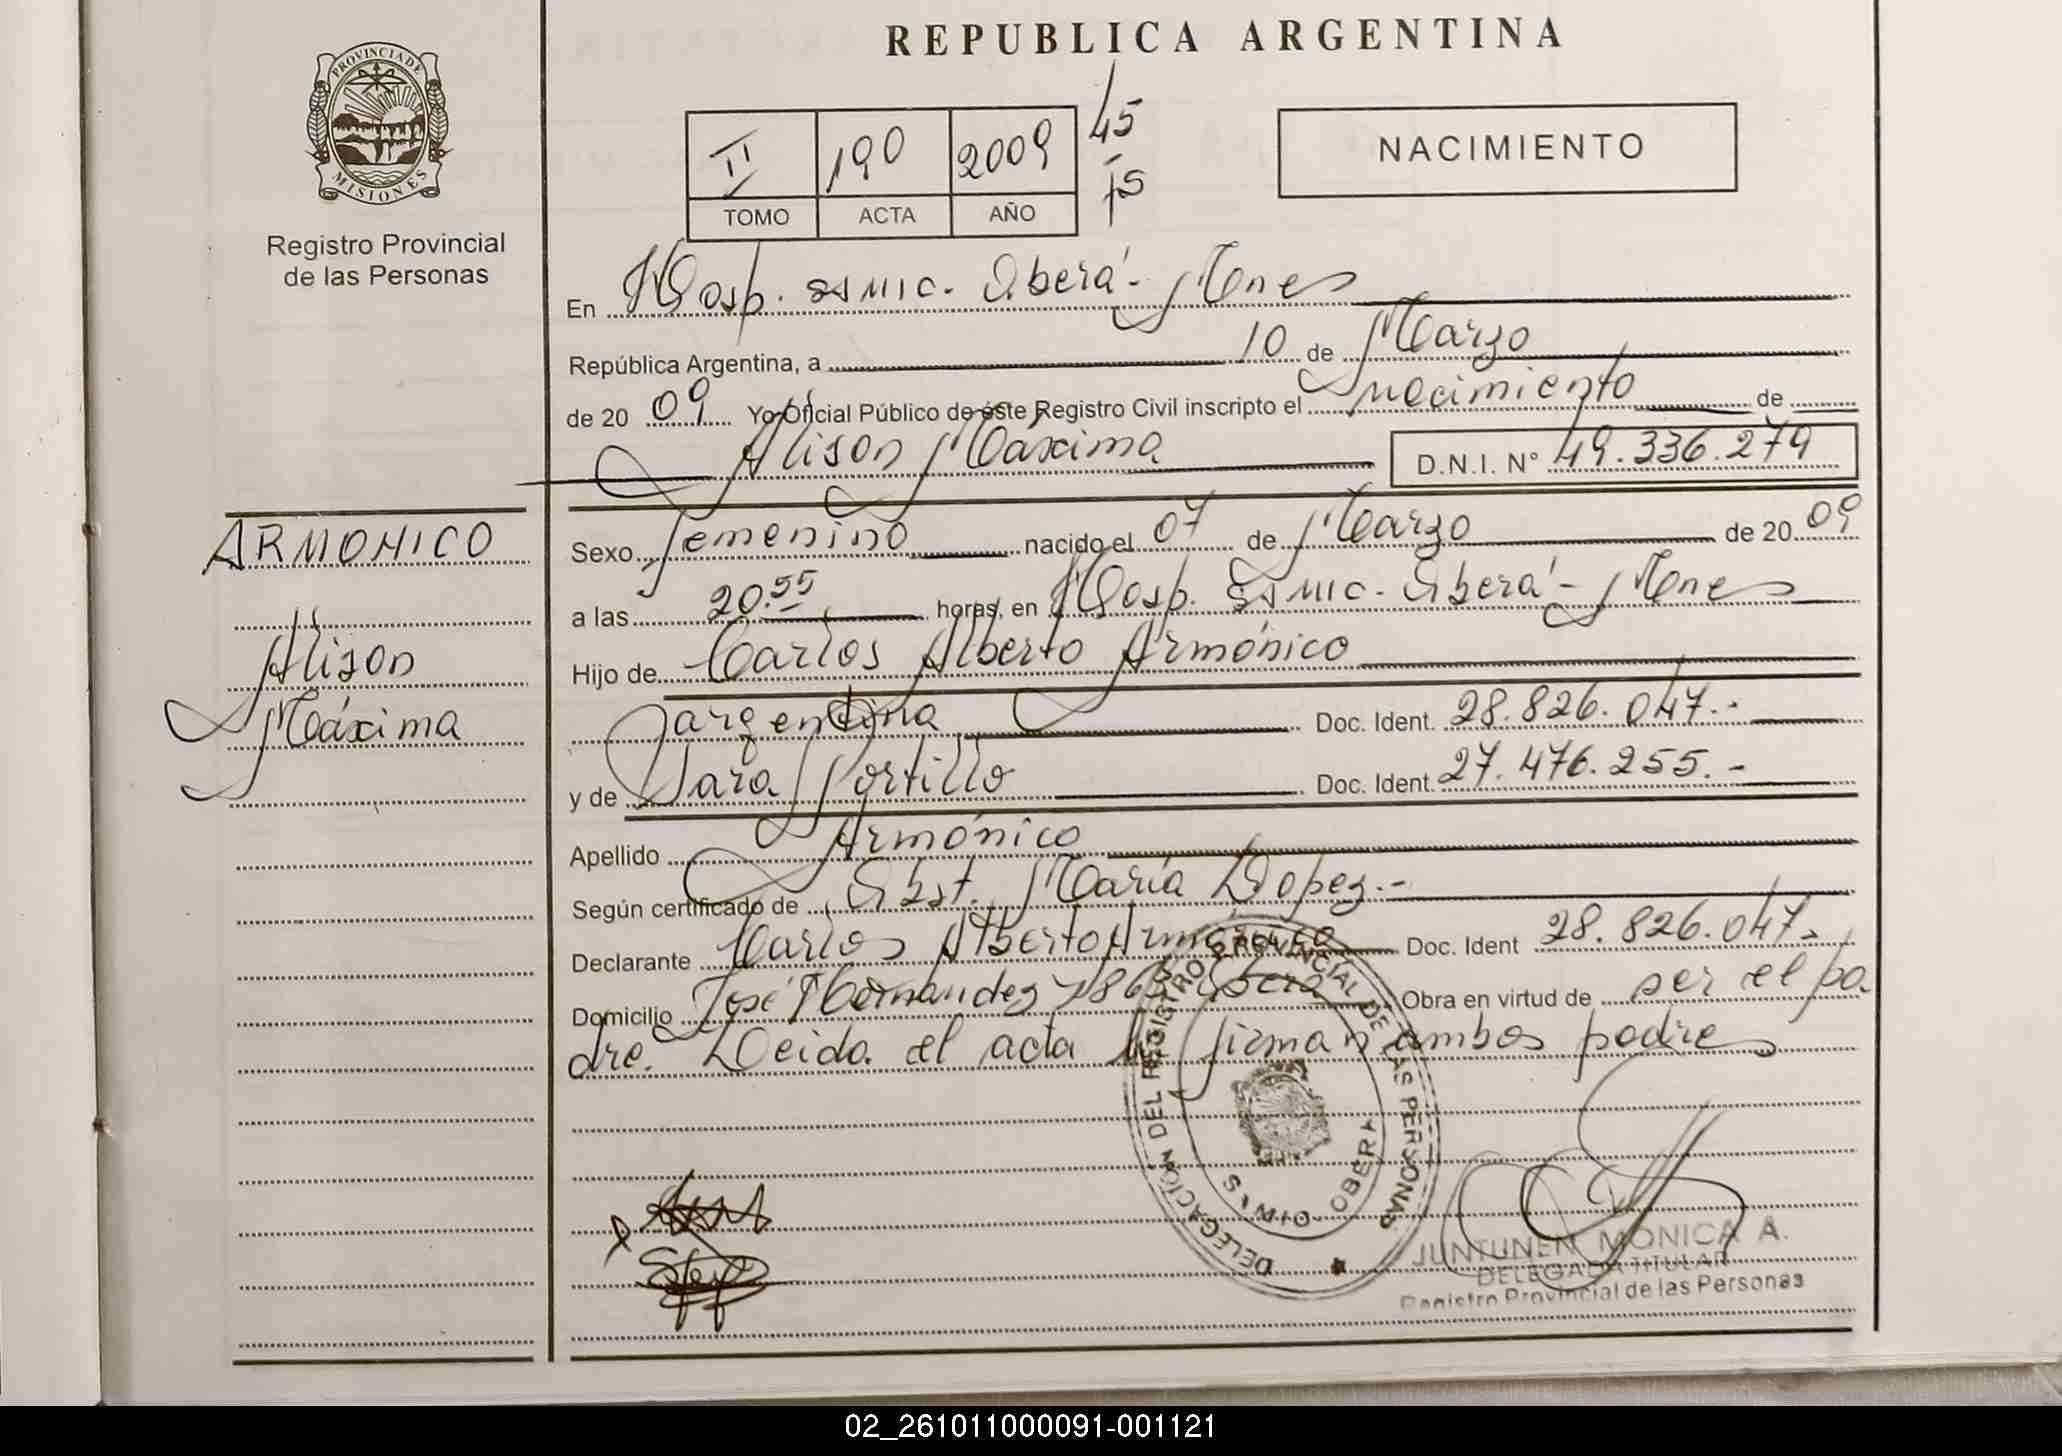 REPUBLICA ARGENTINA
PROVINCIA DE
MISIONES
Registro Provincial
de las Personas
II 190 2009
TOMO ACTA AÑO
45
15
NACIMIENTO
En Hosp. SSMIC. Oberá - Mnes
República Argentina, a 10 de Marzo
de 20 09 Yo Oficial Público de éste Registro Civil inscripto el nacimiento de
Alison Máxima D.N.I. N° 49.336.279
ARMONICO
Alison
Máxima
Sexo femenino nacido el 07 de Marzo de 20 09
a las 20.55 horas, en Hosp. SSMIC. Oberá - Mnes
Hijo de Carlos Alberto Armónico
argentina Doc. Ident. 28.826.047.-
y de Sara Portillo Doc. Ident. 27.476.255.-
Apellido Armónico
Según certificado de Obst. María Lopez.-
Declarante Carlos Alberto Armónico Doc. Ident 28.826.047.
Domicilio José Hernandez Oberá Obra en virtud de ser el pa
dre. Leida el acta la firman ambos padres
DELEGACIÓN DEL REGISTRO PROVINCIAL DE LAS PERSONAS
OBERA
JUNTUNEN MONICA A.
DELEGADA TITULAR
Registro Provincial de las Personas
02_261011000091-001121